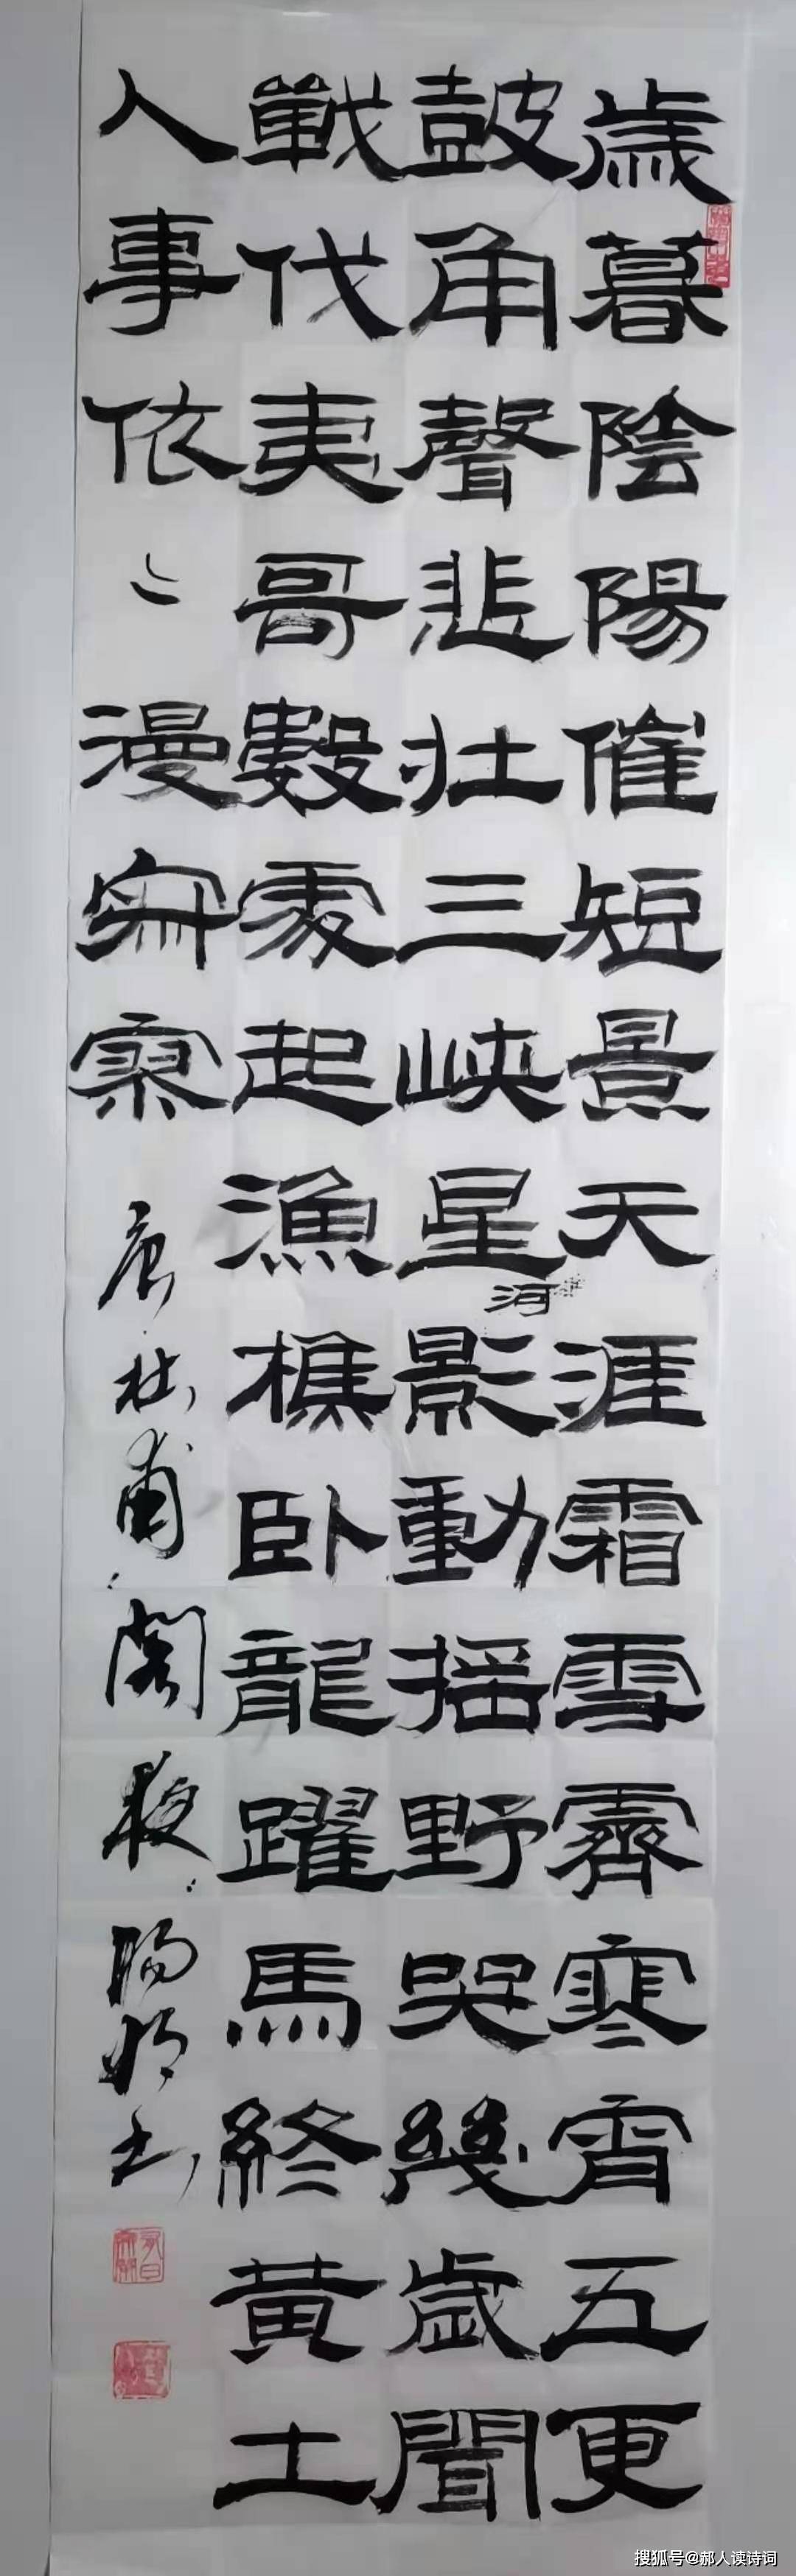 歲暮陰陽催短景天涯霜雪霽寒宵五更
鼓角聲悲壯三峽星河影動搖野哭幾歲聞
戰伐夷哥數處起漁樵卧龍躍馬終黃土
人事依〻漫寂寥 唐杜甫閣夜 书
搜狐号@郝人读诗词